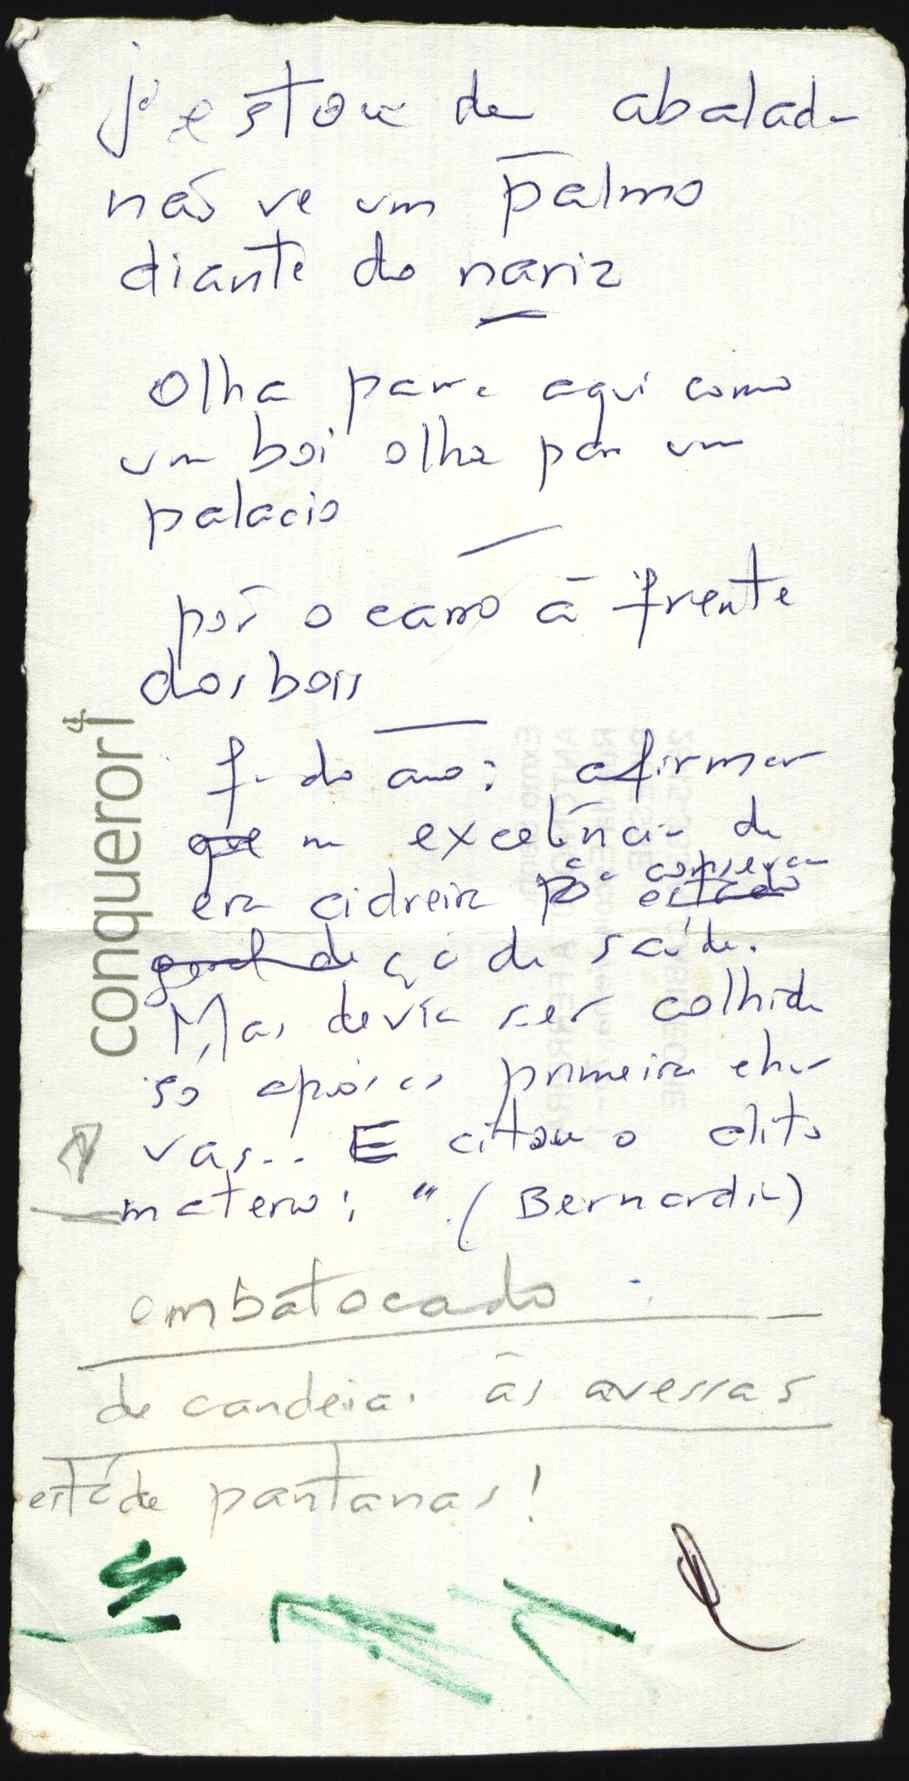 já estou de abalada
não ve um palmo
diante do nariz
Olha para aqui como
um boi olha para um
palacio
pôr o carro à frente
dos bois
f. do ano: afirmar
que na excelência da
erva cidreira pª a conserva
estado
geral de çã de saúde.
Mas devia ser colhida
só após as primeiras chu
vas... E citou o dito
materno: " (Bernardin)
conqueror
embatocado
de candeias às avessas
está de pantanas!